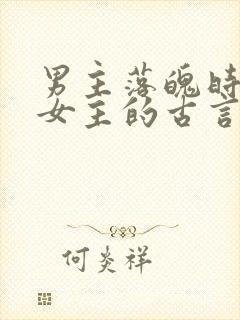 男主落魄时
女主的古言
何炎祥